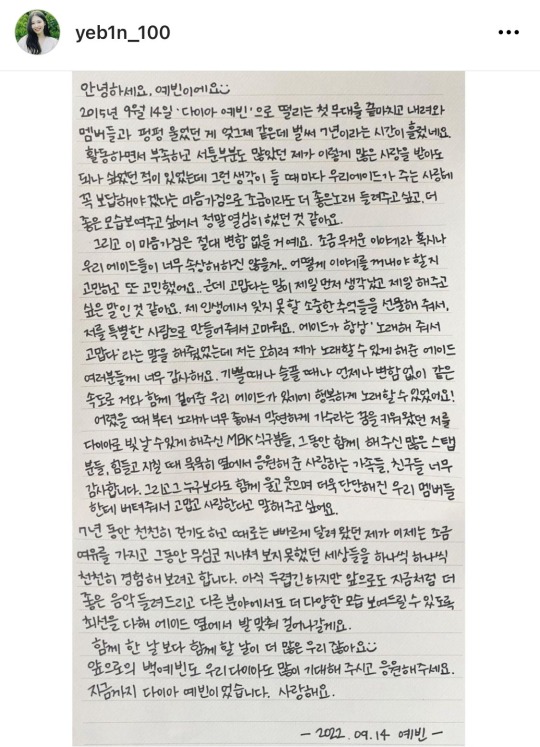 yeb1n_100
안녕하세요, 예빈이에요
2015년 9월 14일 '다이아 예빈'으로 떨리는 첫 무대를 끝마치고 내려와
멤버들과 펑펑 울었던 게 엊그제 같은데 벌써 7년이라는 시간이 흘렀네요
활동하면서 부족하고 서툰부분도 많았던 제가 이렇게 많은 사랑을 받아도
되나 싶었던 적이 있었는데 그런 생각이 들 때마다 우리에이드가 주는 사랑에
꼭 보답해야겠다는 마음가짐으로 조금이라도 더 좋은노래 들려주고싶고, 더
좋은 모습보여주고 싶어서 정말 열심히 했던 것 같아요.
그리고 이 마음가짐은 절대 변함 없을 거예요. 조금 무거운 이야기라 혹시나
우리 에이드들이 너무 속상해하진 않을까.. 어떻게 이야기를 꺼내야 할지
고민하고 또 고민했어요.. 근데 고맙다는 말이 제일 먼저 생각났고 제일 해주고
싶은 말인 것 같아요. 제 인생에서 잊지 못 할 소중한 추억들을 선물해 줘서,
저를 특별한 사람으로 만들어줘서 고마워요. 에이드가 항상 '노래해 줘서
고맙다'라는 말을 해줬었는데 저는 오히려 제가 노래할 수 있게 해준 에이드
여러분들께 너무 감사해요. 기쁠때나 슬플 때나 언제나 변함 없이 같은
속도로 저와 함께 걸어준 우리 에이드가 있기에 행복하게 노래할 수 있었어요!
어렸을 때 부터 노래가 너무 좋아서 막연하게 가수라는 꿈을 키워왔던 저를
다이아로 빛 날 수있게 해주신 MBK 식구분들, 그동안 함께 해주신 많은 스탭
분들, 힘들고 지칠 때 묵묵히 옆에서 응원해 준 사랑하는 가족들, 친구들 너무
감사합니다. 그리고 그 누구보다도 함께 울고 웃으며 더욱 단단해진 우리 멤버들
한테 버텨줘서 고맙고 사랑한다고 말해주고 싶어요.
7년 동안 천천히 걷기도 하고 때로는 빠르게 달려 왔던 제가 이제는 조금
여유를 가지고 그동안 무심코 지나쳐 보지 못했던 세상들을 하나씩 하나씩
천천히 경험해 보려고 합니다. 아직 두렵긴 하지만 앞으로도 지금처럼 더
좋은 음악 들려드리고 다른 분야에서도 더 다양한 모습 보여드릴 수 있도록
최선을 다해 에이드 옆에서 발 맞춰 걸어나갈게요.
함께 한 날 보다 함께 할 날이 더 많은 우리 잖아요
앞으로의 백예빈도 우리 다이아도 많이 기대해 주시고 응원해주세요.
지금까지 다이아 예빈이었습니다. 사랑해요.
- 2022. 09. 14 예빈 -